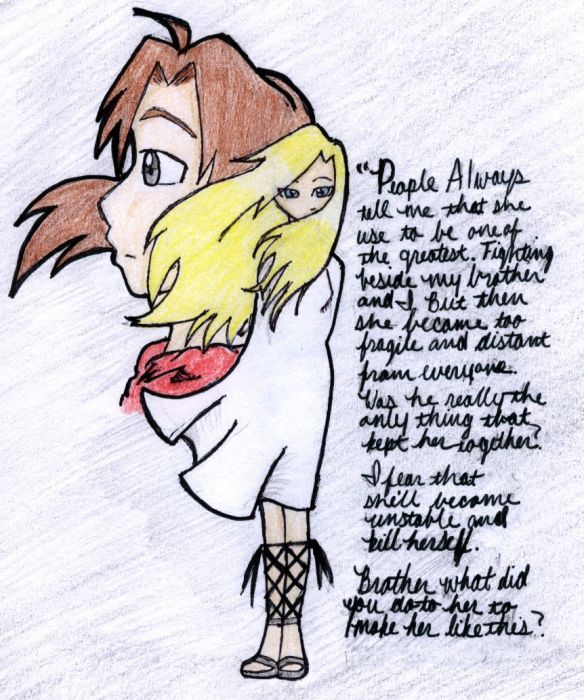 "People Always
tell me that she
use to be one of
the greatest. Fighting
beside my brother
and I But then
she became too
fragile and distant
from everyone.
Was he really the
only thing that
kept her together?
I fear that
she'll become
unstable and
kill herself.
Brother what did
you do to her to
make her like this?